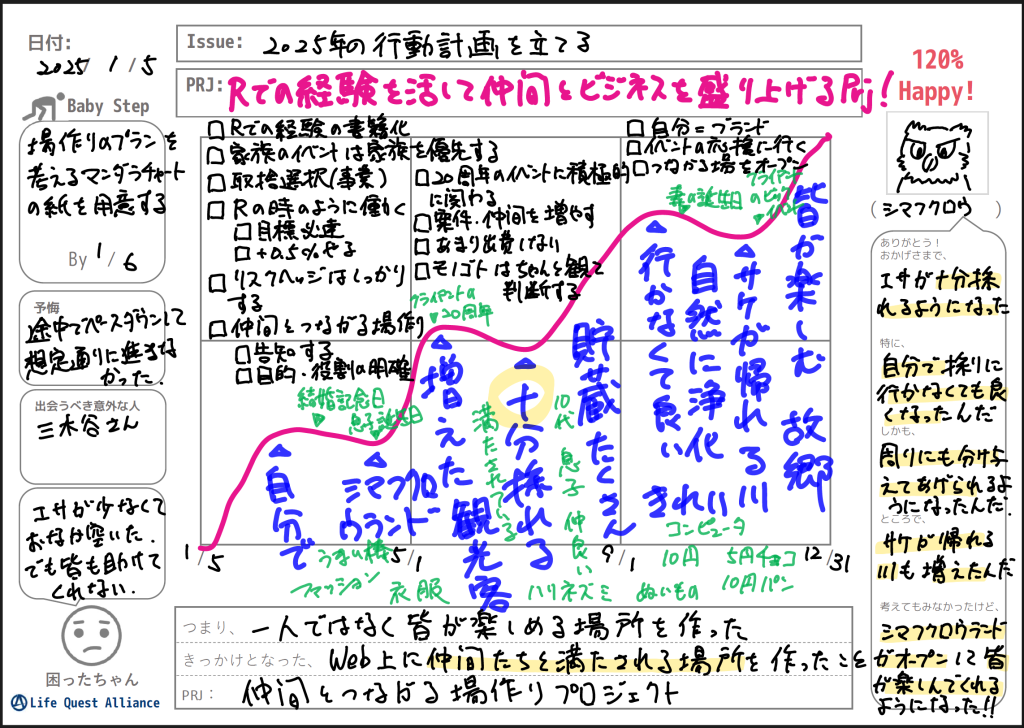 日付:
2025/ 1/5
Issue: 2025年の行動計画を立てる
PRJ: Rでの経験を活して仲間とビジネスを盛り上げるPrj!
120%
Happy!
Baby Step
場作りのプランを
考えるマンダラチャート
の紙を用意する
By 1/6
予悔
途中でペースダウンして
想定通りに進まな
かった.
出会うべき意外な人
三木谷さん
エサが少なくて
おなか空いた.
でも皆も助けて
くれない.
困ったちゃん
Life Quest Alliance
□Rでの経験の書籍化
□家族のイベントは家族を優先する
□取捨選択(事業)
□Rの時のように働く
□目標必達
□+0.5%やる
□リスクヘッジはしっかり
する
□仲間とつながる場作り
□告知する
□目的・役割の明確
□20周年のイベントに積極的
に関わる
□案件・仲間を増やす
□あまり出費しない
□モノゴトはちゃんと観て
判断する
□自分=ブランド
□イベントの応援に行く
□つながる場をオープン
妻の誕生日
クライアントの
20周年
結婚記念日
息子誕生日
自分で
シマフクロウランド
増えた観光客
十分採れる
貯蔵たくさん
行かなくて良い
自然に浄化
きれい
サケが帰れる川
皆が楽しむ故郷
満たされている
10代 息子 仲良い
うまい棒
ファッション
衣服
ハリネズミ
ぬいもの
コンピュータ
10円
5円チョコ
10円パン
1/5
5/1
9/1
12/31
つまり、一人ではなく皆が楽しめる場所を作った
きっかけとなった、Web上に仲間たちと満たされる場所を作ったこと
PRJ: 仲間とつながる場作りプロジェクト
(シマフクロウ)
ありがとう!
おかげさまで、
エサが十分採
れるようになった
特に、
自分で採りに
行かなくても良
くなったんだ
しかも、
周りにも分け与
えてあげられるよ
うになったんだ.
ところで、
サケが帰れる
川も増えたんだ
考えてもみなかったけど、
シマフクロウランド
がオープンして皆
が楽しんでくれる
ようになった!!